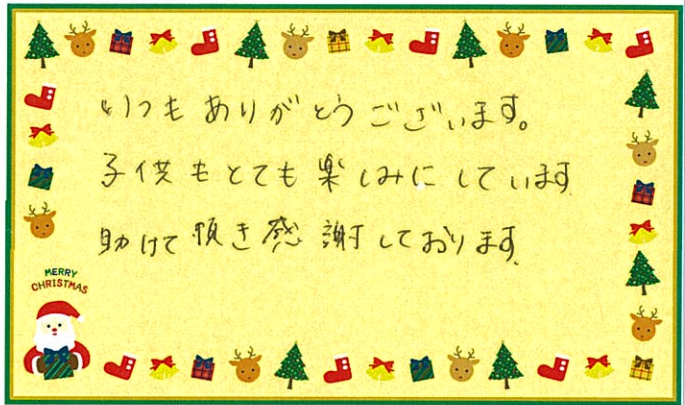 いつもありがとうございます。
子供もとても楽しみにしています
助けて頂き感謝しております。
MERRY
CHRISTMAS